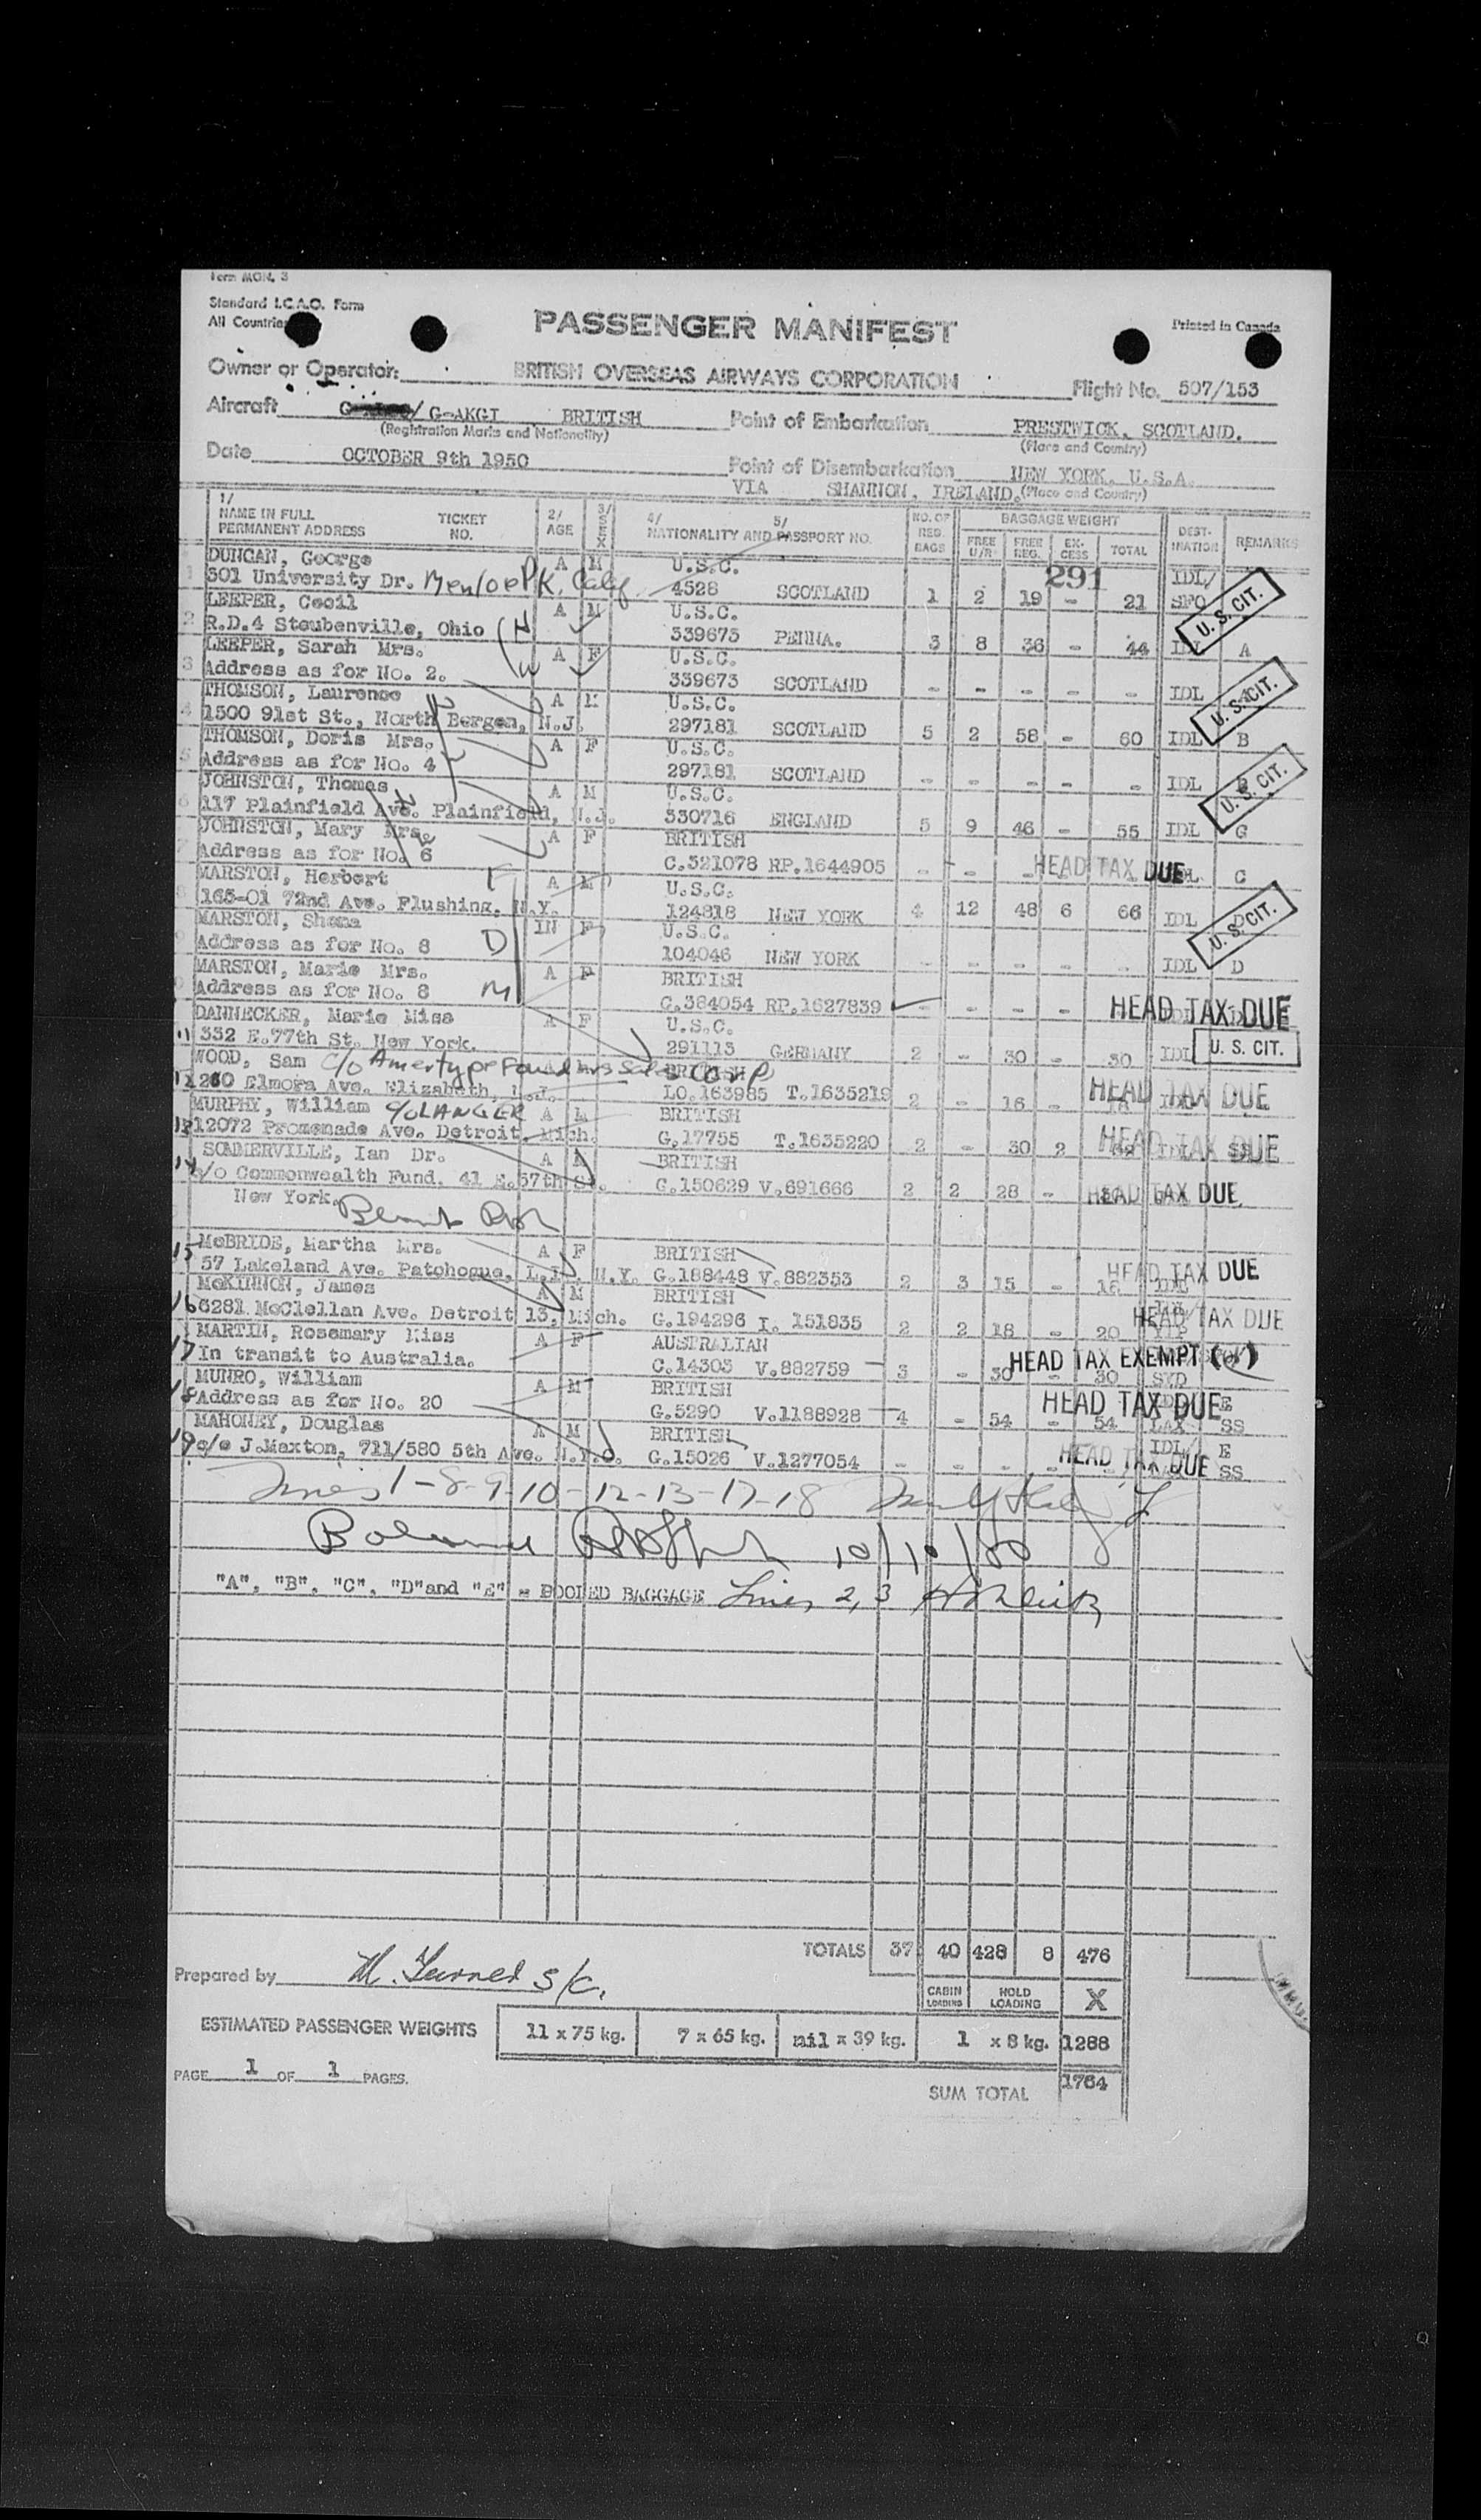 Form MON. 3
Standard I.C.A.O. Form
All Countries
PASSENGER MANIFEST
Printed in Canada
Owner or Operator: BRITISH OVERSEAS AIRWAYS CORPORATION Flight No. 507/153
Aircraft G-AKGI BRITISH Point of Embarkation PRESTWICK, SCOTLAND.
(Registration Marks and Nationality) (Place and Country)
Date OCTOBER 9th 1950 Point of Disembarkation NEW YORK, U.S.A.
VIA SHANNON, IRELAND. (Place and Country)
1/ NAME IN FULL PERMANENT ADDRESS TICKET NO. 2/ AGE 3/ SEX 4/ NATIONALITY AND 5/ PASSPORT NO. NO. OF REG. BAGS BAGGAGE WEIGHT FREE U/R FREE REG. EX-CESS TOTAL DEST-INATION REMARKS
DUNCAN, George A M U.S.C. 291 IDL/
1 301 University Dr. Menlo Pk. Calif. 4528 SCOTLAND 1 2 19 - 21 SFO U. S. CIT.
LEEPER, Cecil A M U.S.C.
2 R.D.4 Steubenville, Ohio H 339673 PENNA. 3 8 36 - 44 IDL A
LEEPER, Sarah Mrs. A F U.S.C.
3 Address as for No. 2. W 339673 SCOTLAND - - - - - IDL U. S. CIT.
THOMSON, Laurence A M U.S.C.
4 1500 91st St., North Bergen, N.J. 297181 SCOTLAND 5 2 58 - 60 IDL B
THOMSON, Doris Mrs. A F U.S.C.
5 Address as for No. 4 297181 SCOTLAND - - - - - IDL B U. S. CIT.
JOHNSTON, Thomas A M U.S.C.
6 117 Plainfield Ave. Plainfield, N.J. 330716 ENGLAND 5 9 46 - 55 IDL C
JOHNSTON, Mary Mrs. A F BRITISH
7 Address as for No. 6 C.321078 RP.1644905 - - - HEAD TAX DUE IDL C
MARSTON, Herbert F A M U.S.C.
8 165-01 72nd Ave. Flushing, N.Y. 124818 NEW YORK 4 12 48 6 66 IDL D U. S. CIT.
MARSTON, Shena IN F U.S.C.
9 Address as for No. 8 D 104046 NEW YORK - - - - - IDL D
MARSTON, Marie Mrs. A F BRITISH
Address as for No. 8 M C.384054 RP.1627839 - - - - HEAD TAX DUE
DANNECKER, Marie Miss A F U.S.C.
11 332 E.77th St. New York. 291113 GERMANY 2 - 30 - 30 IDL U. S. CIT.
WOOD, Sam c/o Amertype Founders Sales Corp BRITISH
12 260 Elmora Ave. Elizabeth, N.J. LO.163985 T.1635219 2 - 16 - HEAD TAX DUE
MURPHY, William c/o LANGER A M BRITISH
13 12072 Promenade Ave. Detroit, Mich. G.17755 T.1635220 2 - 30 2 HEAD TAX DUE
SOMMERVILLE, Ian Dr. A M BRITISH
14 c/o Commonwealth Fund, 41 E.57th St. G.150629 V.691666 2 2 28 - HEAD TAX DUE
New York.
15 McBRIDE, Martha Mrs. A F BRITISH
57 Lakeland Ave. Patchogue, L.I. N.Y. G.188448 V.882353 2 3 15 - HEAD TAX DUE
McKINNON, James A M BRITISH
16 6281 McClellan Ave. Detroit 13, Mich. G.194296 I. 151835 2 2 18 - 20 HEAD TAX DUE
MARTIN, Rosemary Miss A F AUSTRALIAN
17 In transit to Australia. C.14303 V.882759 3 - 30 - 30 HEAD TAX EXEMPT SYD
MUNRO, William A M BRITISH
18 Address as for No. 20 G.5290 V.1188928 4 - 54 - 54 HEAD TAX DUE LAX E SS
MAHONEY, Douglas A M BRITISH IDL/ E
19 c/o J.Maxton, 711/580 5th Ave. N.Y.C. G.15026 V.1277054 - - - HEAD TAX DUE SS
Lines 1-8-9-10-12-13-17-18
10/10/50
"A", "B", "C", "D" and "E" = POOLED BAGGAGE Lines 2, 3
TOTALS 37 40 428 8 476
Prepared by
CABIN LOADING HOLD LOADING X
ESTIMATED PASSENGER WEIGHTS 11 x 75 kg. 7 x 65 kg. nil x 39 kg. 1 x 8 kg. 1288
PAGE 1 OF 1 PAGES.
SUM TOTAL 1764